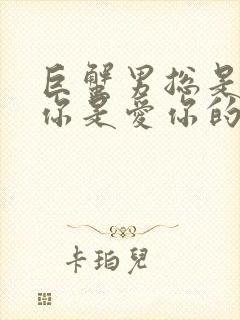 巨蟹男总是
你是爱你的
卡珀兒